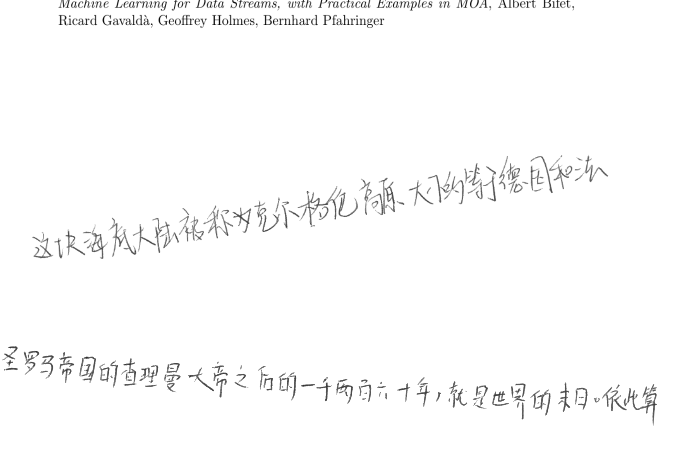 Machine Learning for Data Streams, with Practical Examples in MOA, Albert Bifet,
Ricard Gavaldà, Geoffrey Holmes, Bernhard Pfahringer
这块海底大陆被称为克尔格伦高原、大小约等于德国和法
圣罗马帝国的查理曼大帝之后的一千两百六十年,就是世界的末日。依此算